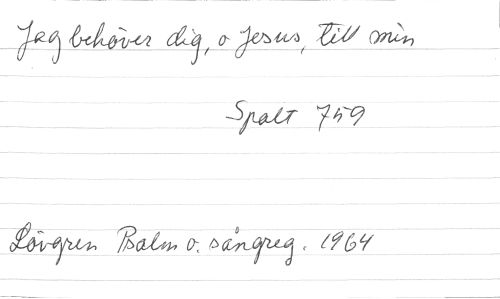 Jag behöver dig, o Jesus, till min
Spalt 759
Lövgren Psalm o. sångreg. 1964